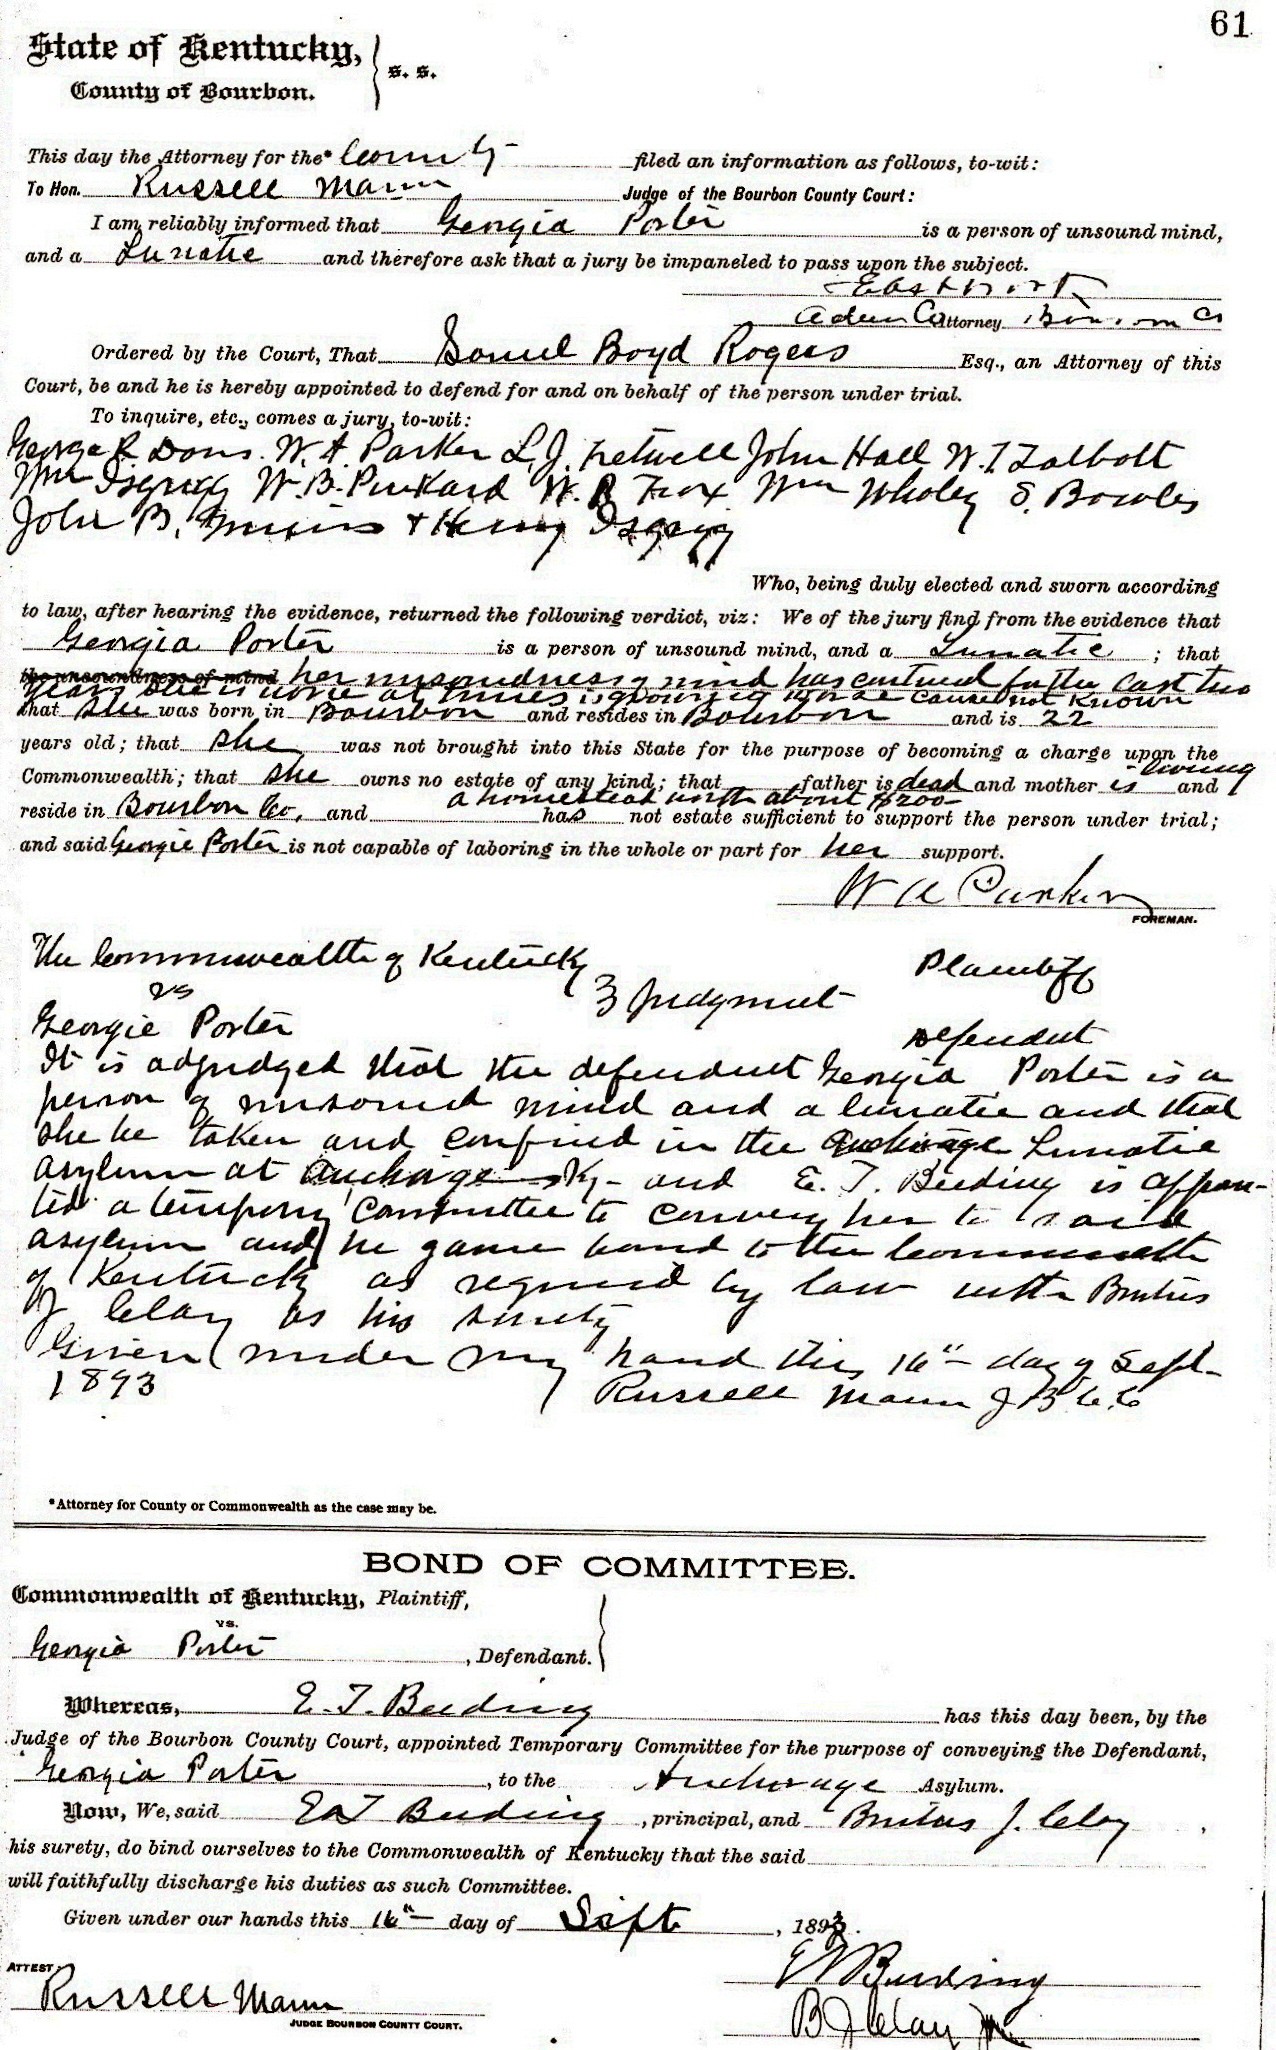 61
State of Kentucky,
County of Bourbon. } s. s.
This day the Attorney for the* County filed an information as follows, to-wit:
To Hon. Russell Mann Judge of the Bourbon County Court:
I am reliably informed that Georgia Porter is a person of unsound mind,
and a Lunatic and therefore ask that a jury be impaneled to pass upon the subject.
Attorney
Ordered by the Court, That Samuel Boyd Rogers Esq., an Attorney of this
Court, be and he is hereby appointed to defend for and on behalf of the person under trial.
To inquire, etc., comes a jury, to-wit:
George R Davis. W. A. Parker L. J. Fretwell John Hall W. T Talbott
Wm Isgrigg W. B. Pinkard W. R Wm Whaley S. Bowles
John B. & Henry Isgrigg
Who, being duly elected and sworn according
to law, after hearing the evidence, returned the following verdict, viz: We of the jury find from the evidence that
Georgia Porter is a person of unsound mind, and a Lunatic ; that
the unsoundness of mind her unsoundness of mind has continued for the last two
years she is worse at times is growing worse cause not known
that she was born in Bourbon and resides in Bourbon and is 22
years old; that she was not brought into this State for the purpose of becoming a charge upon the
Commonwealth; that she owns no estate of any kind; that father is dead and mother is living and
reside in Bourbon Co, and a homestead worth about $200- has not estate sufficient to support the person under trial;
and said Georgie Porter is not capable of laboring in the whole or part for her support.
W A Parker
FOREMAN.
The Commonwealth of Kentucky Plaintiff
vs } Judgment
Georgie Porter Defendent
It is adjudged that the defendent Georgia Porter is a
person of unsound mind and a lunatic and that
she be taken and confined in the Anchorage Lunatic
asylum at Anchorage Ky- and E. T. Beeding is appoin-
ted a temporary Committee to convey her to said
asylum and he gave bond to the Commonwealth
of Kentucky as required by law with Brutus
J Clay as his surety
Given under my hand this 16" day of Sept-
1893 Russell Mann J B C C
*Attorney for County or Commonwealth as the case may be.
BOND OF COMMITTEE.
Commonwealth of Kentucky, Plaintiff,
vs.
Georgia Porter , Defendant.
Whereas, E. T. Beeding has this day been, by the
Judge of the Bourbon County Court, appointed Temporary Committee for the purpose of conveying the Defendant,
Georgia Porter , to the Anchorage Asylum.
Now, We, said E T Beeding , principal, and Brutus J. Clay ,
his surety, do bind ourselves to the Commonwealth of Kentucky that the said
will faithfully discharge his duties as such Committee.
Given under our hands this 16" day of Sept. , 1893.
E T Beeding
ATTEST:
Russell Mann
JUDGE BOURBON COUNTY COURT.
B J Clay Jr.